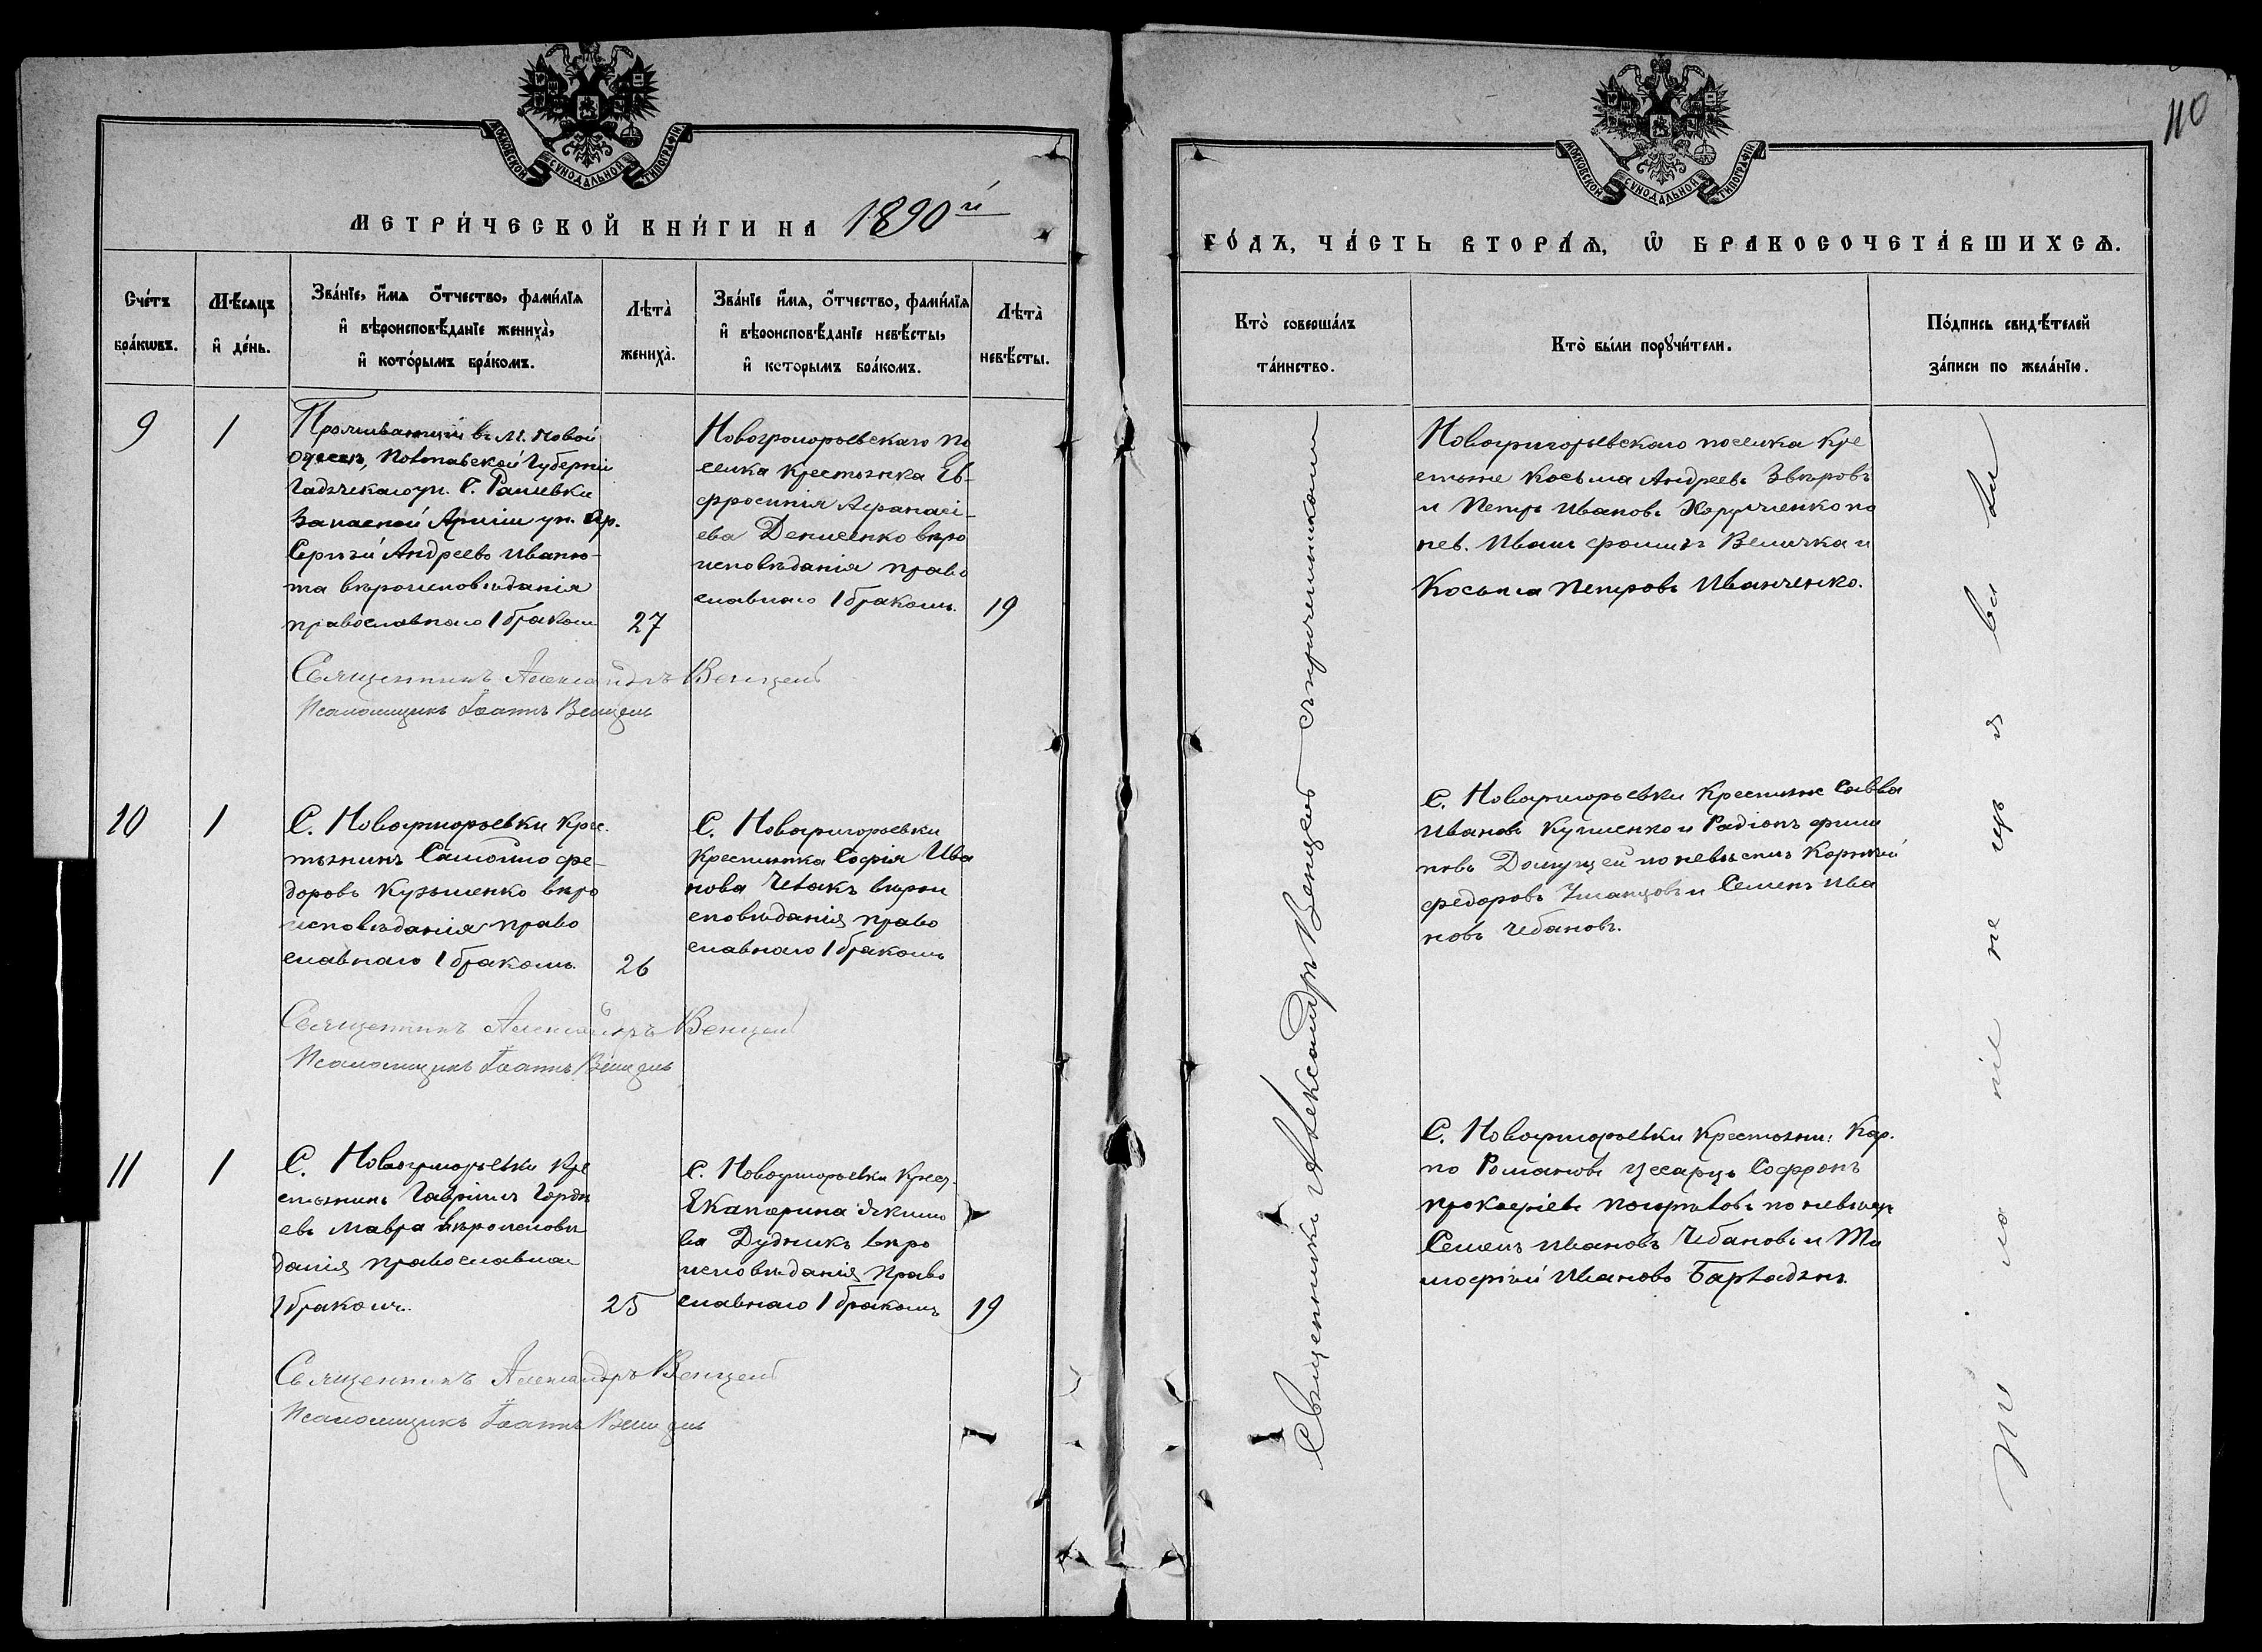 МОСКОВСКОЙ СѴНОДАЛЬНОЙ ТИПОГРАФІИ
МЕТРИ́ЧЕСКОЙ КНИ́ГИ НА 1890й
Сче́тъ бра́кѡвъ.
Мѣ́сяцъ и҆ де́нь.
Зва́нїе, и҆́мя ѻ҆́тчество, фами́лїя
и҆ вѣроисповѣ́данїе жениха̀,
и҆ кото́рымъ бра́комъ.
Лѣта̀ жениха̀.
Зва́нїе и҆́мя, ѻ҆́тчество, фами́лїя
и҆ вѣроисповѣ́данїе невѣ́сты,
и҆ которымъ бра́комъ.
Лѣта̀ невѣ́сты.
9
1
Проживающій въ м. Новой
Одессѣ, Полтавской Губерніи
Гадячскаго уѣ. С. Рашевки
Запасной Арміи ун.
Сергѣй Андреевъ Иваню-
та вѣроисповѣданія
православнаго 1 бракомъ
27
Новогригорьевскаго по
селка крестьянка Ев-
фросинія Афанасі-
ева Денисенко вѣро
исповѣданія право
славнаго 1 бракомъ.
19
Священникъ Александръ Венцель
Псаломщикъ Іоаннъ Венцель
10
1
С. Новогригорьевки Крес-
тьянинъ Самойло Фе-
доровъ Кузьменко вѣро
исповѣданія право
славнаго 1 бракомъ.
26
С. Новогригорьевки
Крестьянка Софія Ива
нова вѣрои
сповѣданія право
славнаго 1 бракомъ
Священникъ Александръ Венцель
Псаломщикъ Іоаннъ Венцель
11
1
С. Новогригорьевки Кре
стьянинъ Гавріилъ Гордѣ
евъ Мавра вѣроисповѣ
данія православнаг
1 бракомъ.
25
С. Новогригорьевки Крест.
Екатерина Якимо
ва Дудникъ вѣро
исповѣданія Право
славнаго 1 бракомъ
19
Священникъ Александръ Венцель
Псаломщикъ Іоаннъ Венцель
110
МОСКОВСКОЙ СѴНОДАЛЬНОЙ ТИПОГРАФІИ
ГО́ДЪ, ЧА́СТЬ ВТОРА́Ѧ, Ѡ҆ БРАКОСОЧЕТА́ВШИХСѦ.
Кто̀ соверша́лъ
та́инство.
Кто̀ бы́ли порꙋчи́тели.
По́дпись свидѣ́телей
за́писи по жела́нїю.
Священникъ Александръ Венцель съ причетникомъ
Новогригорьевскаго поселка кре
стьяне Косьма Андреевъ Звѣровъ
и Петръ Ивановъ Харченко по
нев. Иванъ Фоминъ Величка и
Косьма Петровъ Иванченко.
С. Новогригорьевки Крестьяне Савва
Ивановъ и Радіонъ Фили
повъ по невѣстѣ Корнѣй
Федоровъ Уманцовъ и Семенъ Ива
новъ Чебановъ.
С. Новогригорьевки Крестьяни: Кар-
по Романовъ Цесарць Софронъ
Прокофіевъ по невѣстѣ
Семенъ Ивановъ Чебановъ и Ти
мофей Ивановъ